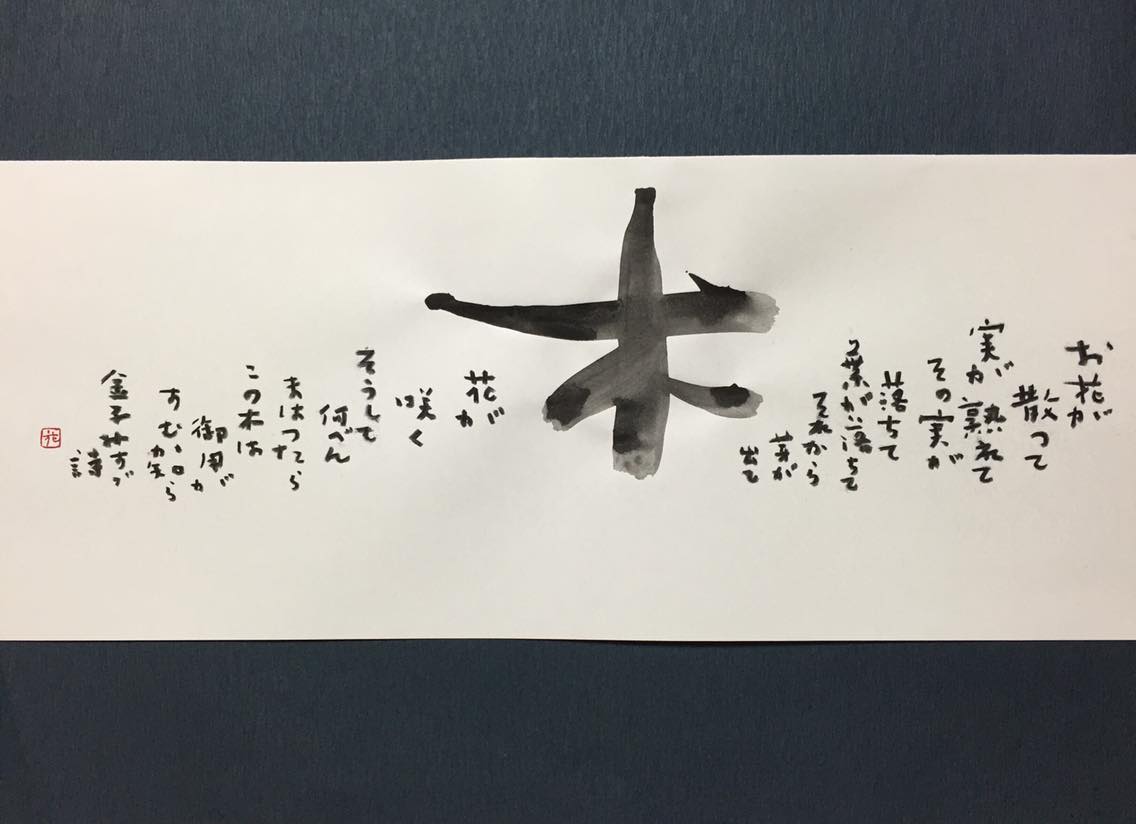 お花が
散って
実が熟れて
その実が
落ちて
葉が落ちて
それから
芽が
出て
木
花が
咲く
そうして
何べん
まはったら
この木は
御用が
すむか知ら
金子みすゞ
詩
花